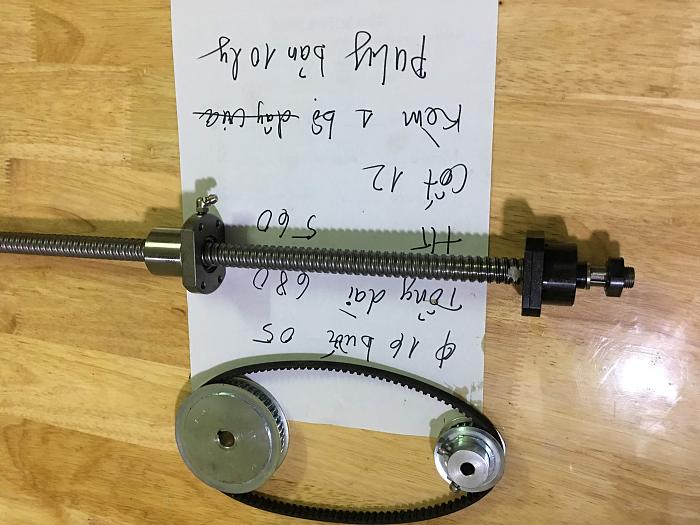 φ 16 bước 05
Tổng dài 680
HT 560
Cốt 12
Kèm 1 bộ dây Cuia
Puly bản 10 ly